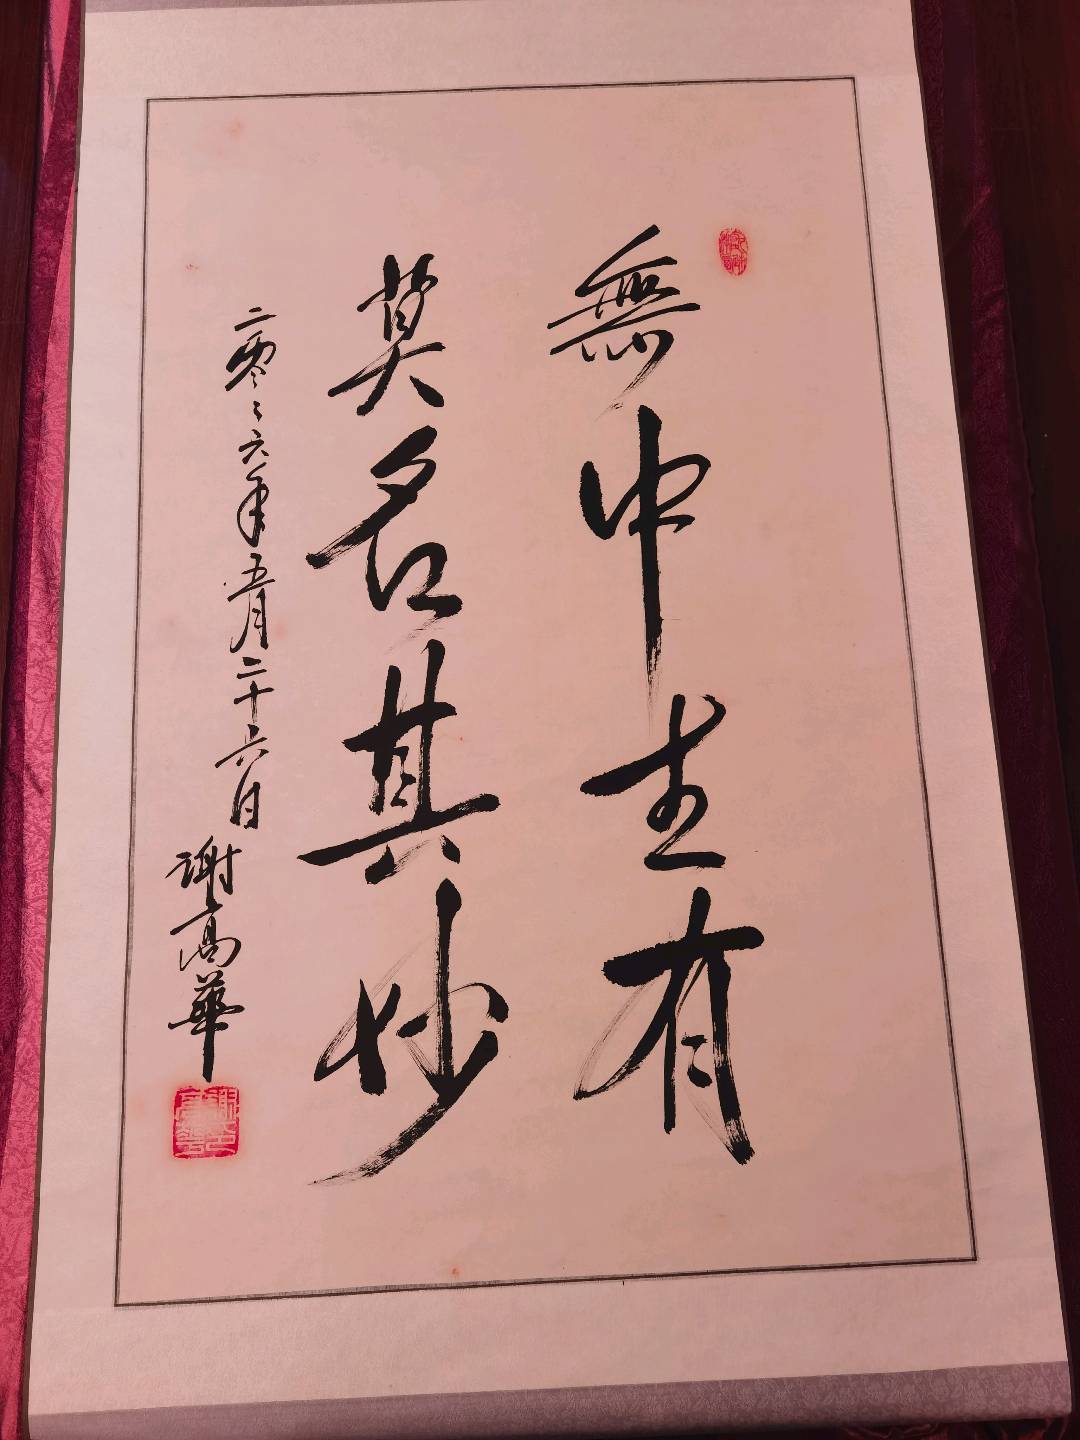 無中生有
莫名其妙
二零〻六年五月二十六日
謝高華